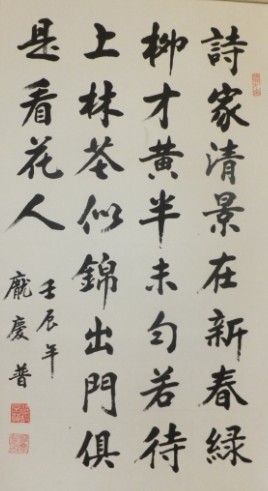 詩家清景在新春緑
柳才黄半未匀若待
上林花似錦出門俱
是看花人
壬辰年
龐慶普